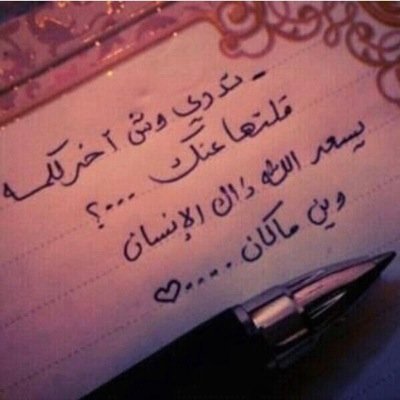 - تدري وش آخر كلمه
قلتها عنك ...؟
يسعد الله ذاك الإنسان
وين ماكان ....♡